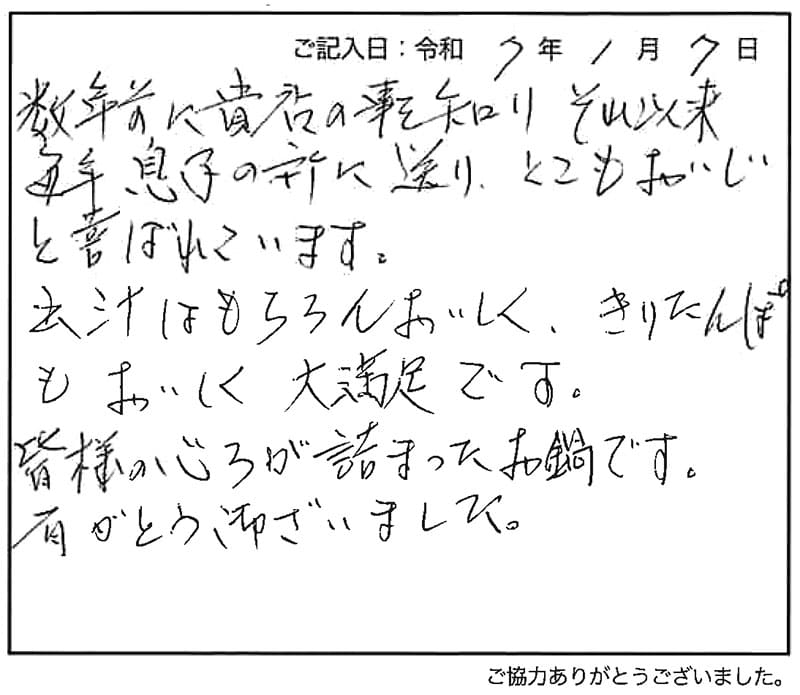 ご記入日：令和 7年 1月 7日
数年前に貴店の事を知り それ以来
毎年 息子の所に 送り、とてもおいしい
と喜ばれています。
汁はもちろんおいしく、きりたんぽ
も おいしく 大満足です。
皆様の心ろが詰まったお鍋です。
有がとう御ざいました。
ご協力ありがとうございました。